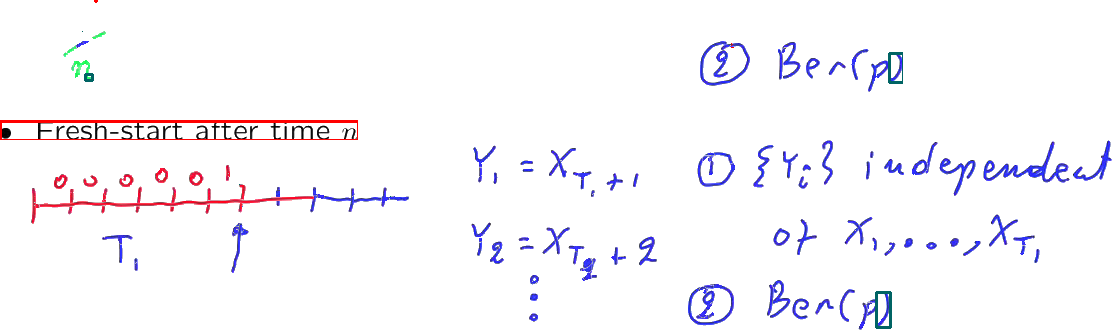 n
② Ber(p)
• Fresh-start after time n
0 0 0 0 0 1
T₁
Y₁ = X_{T₁+1}
Y₂ = X_{T₂+2}
⋮
① {Yᵢ} independent
of X₁,...,X_{T₁}
② Ber(p)